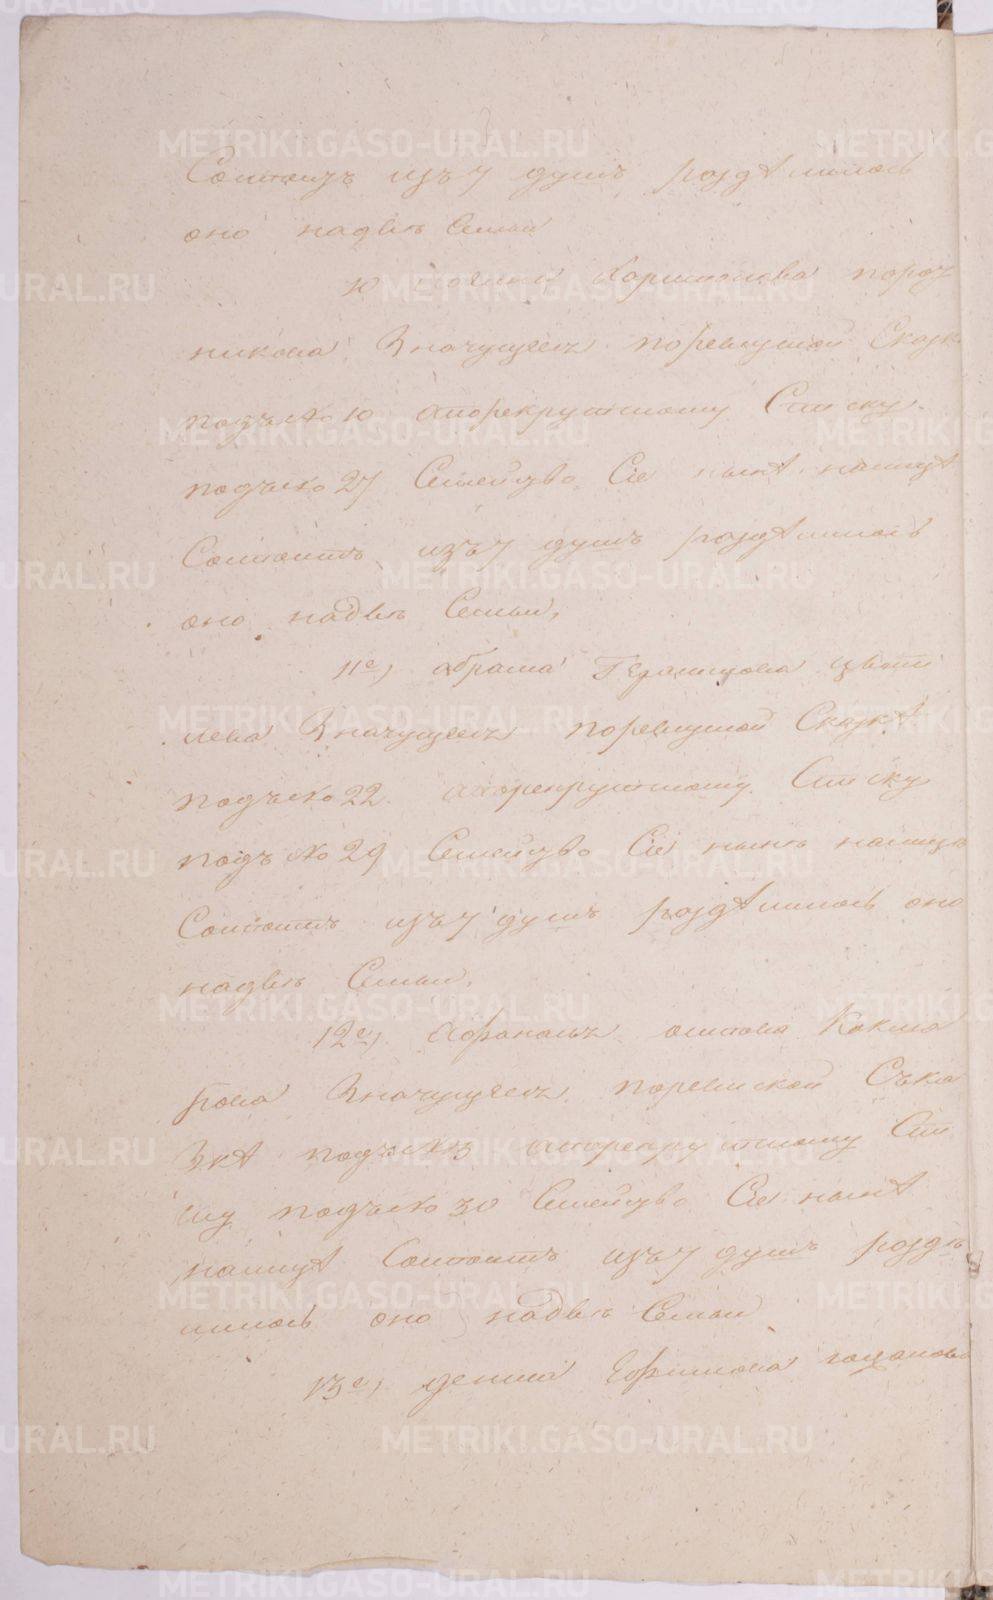 METRIKI.GASO-URAL.RU
Состоитъ изъ 7 душъ раздѣлилось
оно надвѣ семьи
10 Харитонова
никова Значущемъ поревизской Сказкѣ
подъ № 10 апорекрутскому Списку
подъ № 27 Семейцво Сіе нынѣ налицѣ
Состоитъ изъ 7 душъ раздѣлилось
оно надвѣ Семьи,
11е, абрама Герасимова
лева Значущемъ поревизской Сказкѣ
подъ № 22 апорекрутскому Списку
подъ № 29 Семейцво Сіе нынѣ налицѣ
Состоитъ изъ 7 душъ раздѣлилось оно
надвѣ Семьи,
12е, Кокша
рова Значущемъ поревиской Съка
зкѣ подъ № апорекрутскому Спи
ску подъ № 30 Семейцво Сіе нынѣ
налицѣ Состоитъ изъ 7 душъ раздѣ
лилось оно надвѣ Семьи
13е, дениса Ефимова